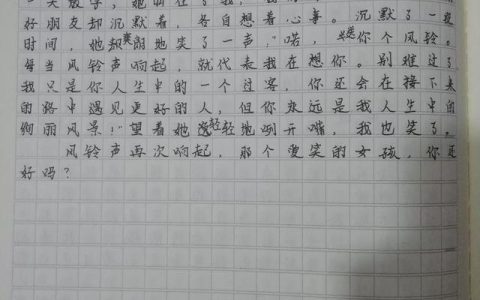 一天放学，她叫住了我，
好朋友却沉默着，各自想着心事。沉默了一段
时间，她却爽朗地笑了一声，"喏，送你个风铃。
每当风铃声响起，就代表我在想你。别难过了，
我只是你人生中的一个过客，你还会在接下来
的路中遇见更好的人，但你永远是我人生中的
绚丽风景！"望着她轻轻地咧开嘴，我也笑了。
风铃声再次响起，那个爱笑的女孩，你还
好吗？